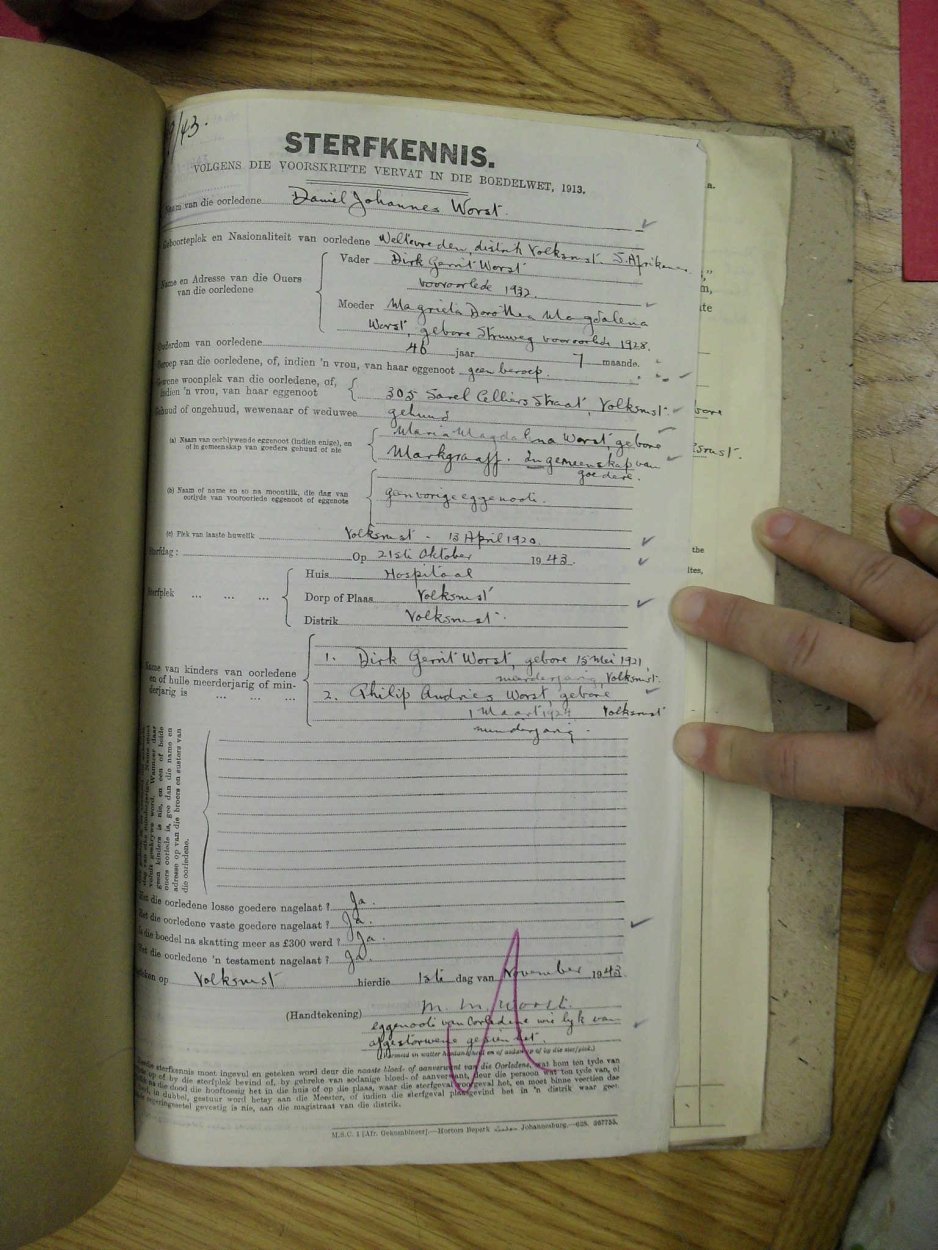 9/43.
STERFKENNIS.
VOLGENS DIE VOORSKRIFTE VERVAT IN DIE BOEDELWET, 1913.
Naam van die oorledene Daniel Johannes Worst.
Geboorteplek en Nasionaliteit van oorledene Weltevreden, distrik Volksrust. S. Afrikaner
Name en Adresse van die Ouers van die oorledene
Vader Dirk Gerrit Worst
vooroorlede 1932.
Moeder Magrieta Dorothea Magdalena
Worst, gebore Struweg vooroorlede 1928.
Ouderdom van oorledene 46 jaar 7 maande.
Beroep van die oorledene, of, indien 'n vrou, van haar eggenoot geen beroep.
Gewone woonplek van die oorledene, of, indien 'n vrou, van haar eggenoot
305 Sarel Celliers Straat, Volksrust
Gehuud of ongehuud, wewenaar of weduwee gehuud
(a) Naam van oorblywende eggenoot (indien enige), en of in gemeenskap van goedere gehuud of nie
Maria Magdalena Worst, gebore
Markgraaff. In gemeenskap van
goedere.
(b) Naam of name en so na moontlik, die dag van ootlyde van vooroorlede eggenoot of eggenote
geen vorige eggenoote.
(c) Plek van laaste huwelik Volksrust - 13 April 1920.
Sterfdag: Op 21ste Oktober 1943.
Sterfplek ... ... ...
Huis Hospitaal
Dorp of Plaas Volksrust
Distrik Volksrust.
Name van kinders van oorledene en of hulle meerderjarig of minderjarig is ... ... ...
1. Dirk Gerrit Worst, gebore 15 Mei 1921,
meerderjarig, Volksrust.
2. Philip Andries Worst, gebore
1 Maart 1924 Volksrust
minderjarig.
geen kinders is nie, en een of beide
ouers oorlede is, gee dan die name en
adresse op van die broers en susters van
die oorledene.
Het die oorledene losse goedere nagelaat? Ja.
Het die oorledene vaste goedere nagelaat? Ja.
Is die boedel na skatting meer as £300 werd? Ja.
Het die oorledene 'n testament nagelaat? Ja.
Geteken op Volksrust hierdie 1ste dag van November 1943.
(Handtekening) M. M. Worst.
eggenoote van Oorledene wie lyk van
afgestorwene gesien het.
Hierdie sterfkennis moet ingevul en geteken word deur die naaste bloed- of aanverwant van die Oorledene, wat hom ten tyde van
die dood op of by die sterfplek bevind of, by gebreke van sodanige bloed- of aanverwant, deur die persoon wat ten tyde van, of
na die dood die hooftoesig het in die huis of op die plaas, waar die sterfgeval voorgeval het, en moet binne veertien dae
daarna, in dubbel, gestuur word hetsy aan die Meester, of indien die sterfgeval plaasgevind het in 'n distrik waar geen
regeringsetel gevestig is nie, aan die magistraat van die distrik.
M.S.C. 1 [Afr. Gekombineer].—Hortors Beperk Johannesburg.—628. 367753.